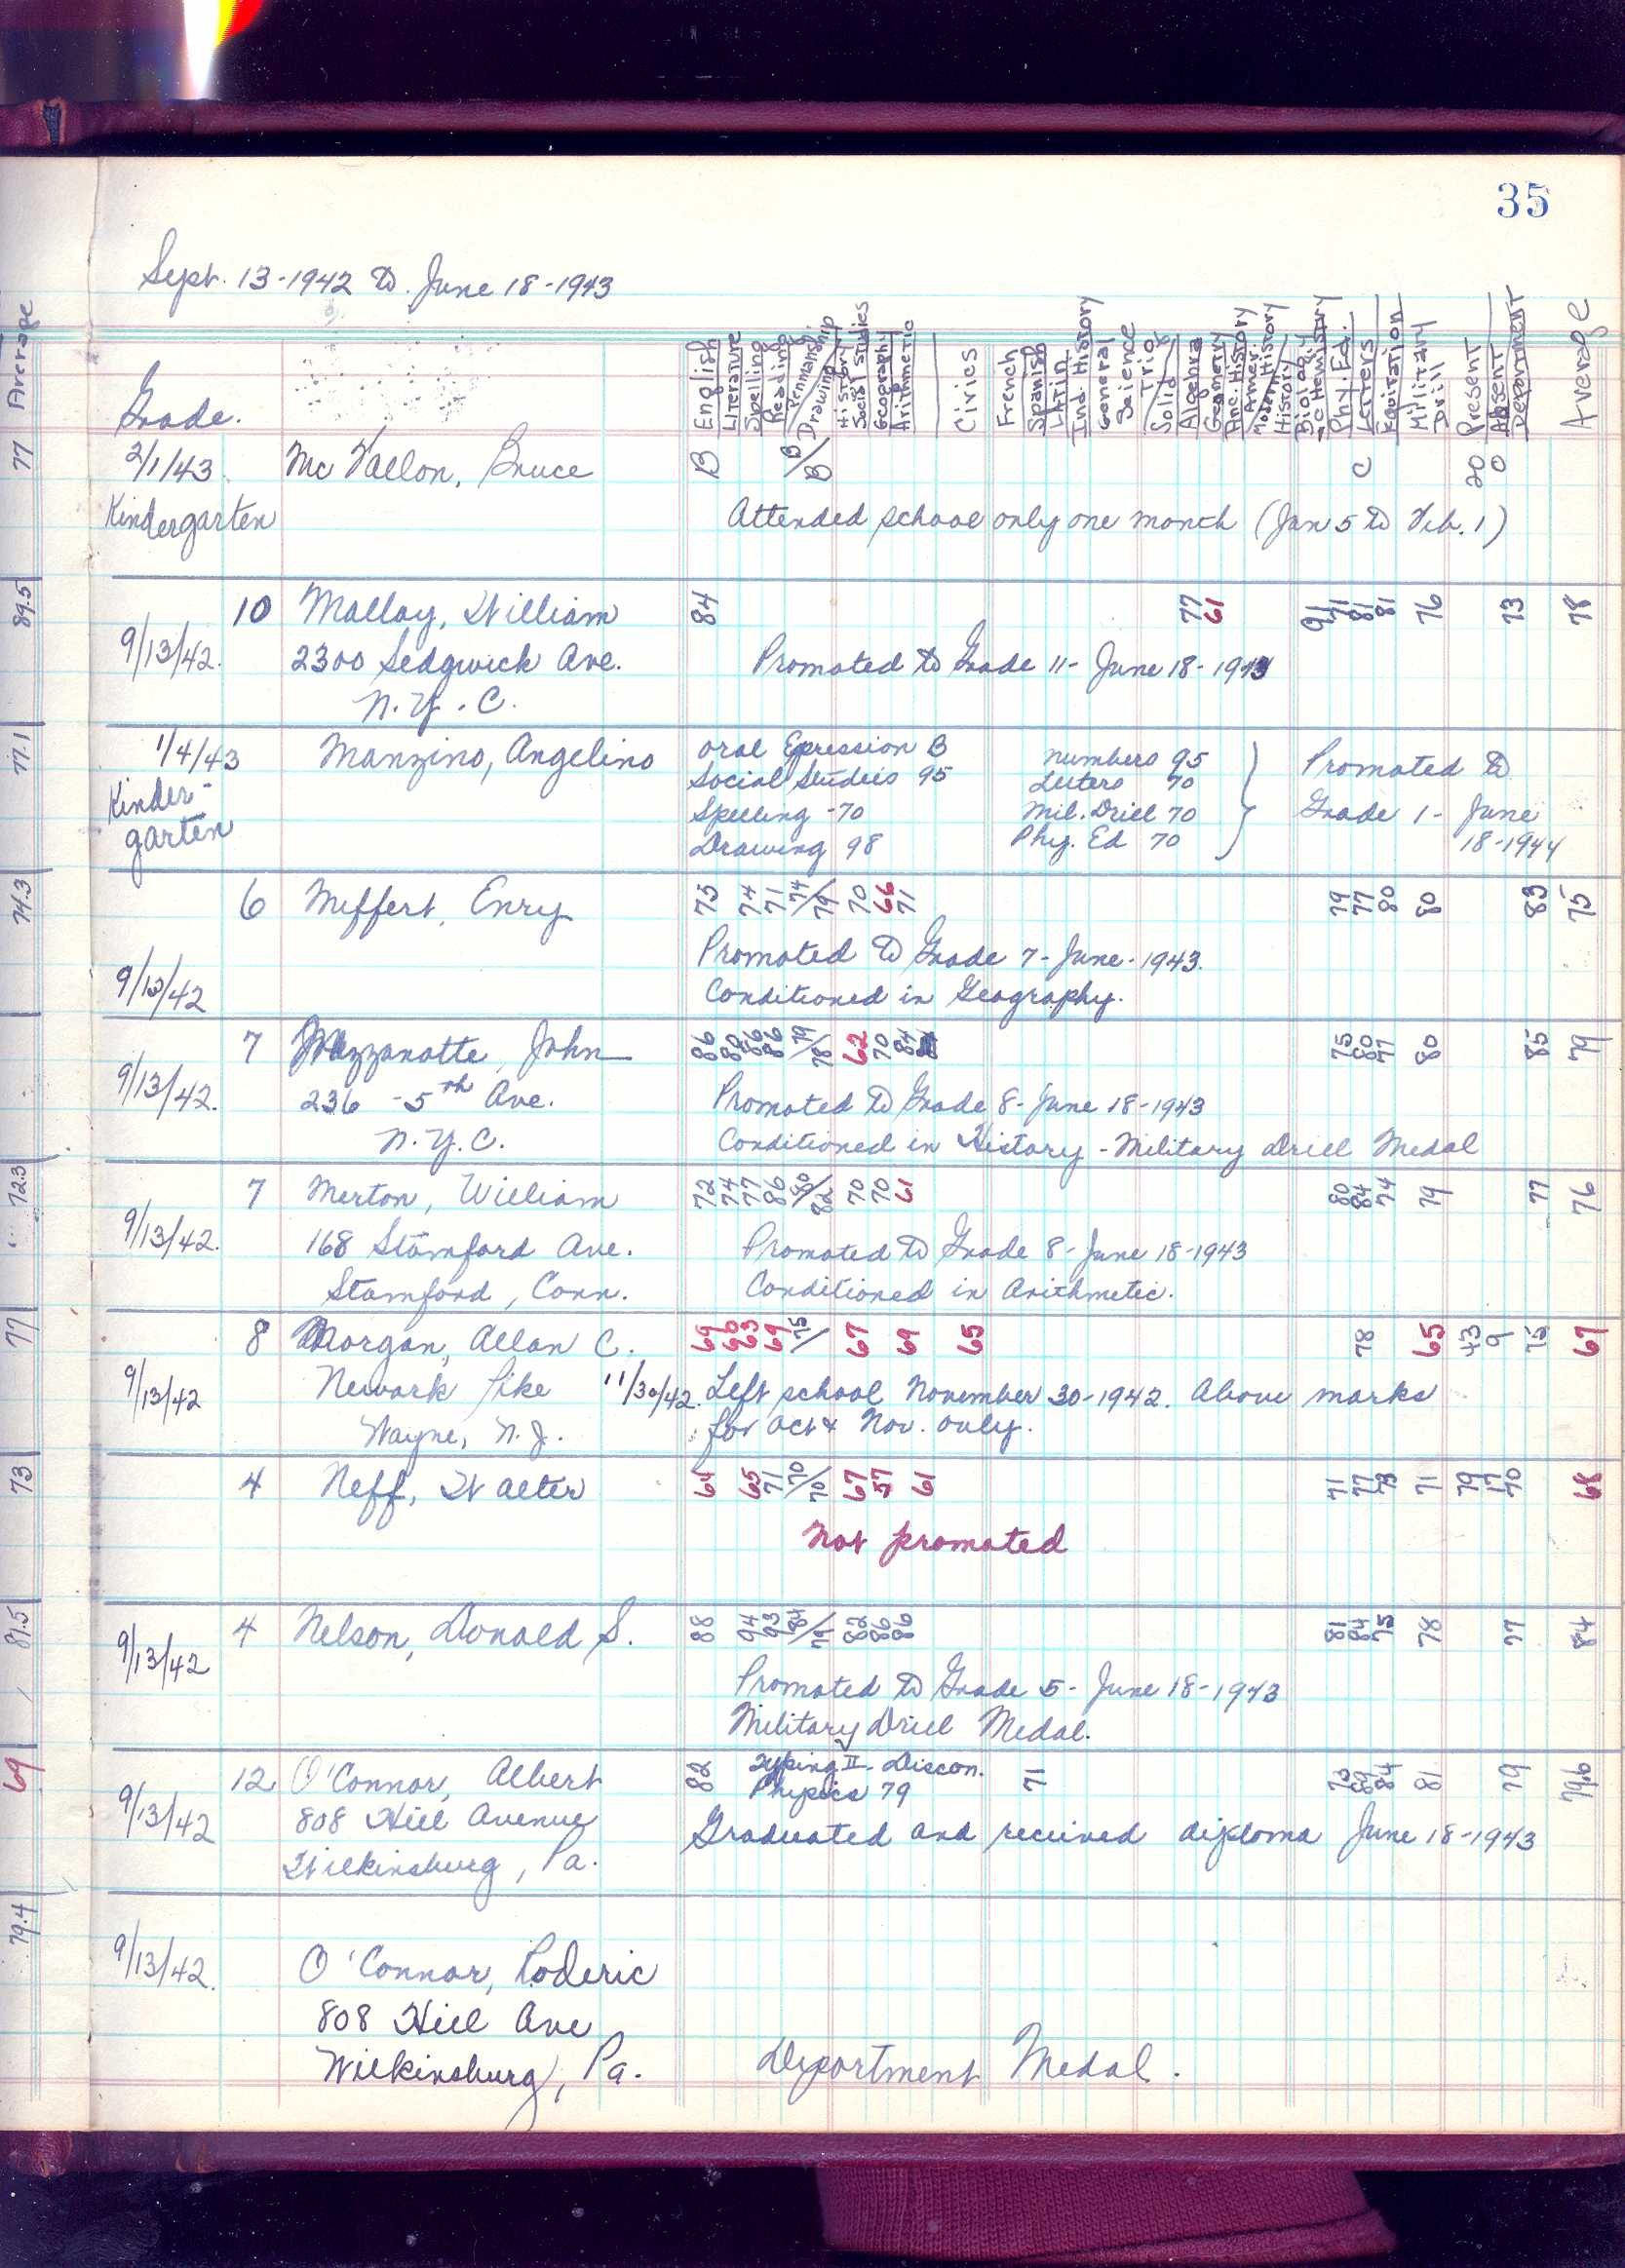 35
Sept. 13-1942 to June 18-1943
Average
Grade.
English
Literature
Spelling
Reading
Penmanship
Drawing
History
Social Studies
Geography
Arithmetic
Civics
French
Spanish
Latin
Ind. History
General Science
Solid
Trig
Algebra
Geometry
Anc. History
Amer. History
Modern History
Biology
Chemistry
Phy. Ed.
Letters
Equitation
Military Drill
Present
Absent
Department
Average
77
2/1/43. Mc Fallon, Bruce B B/B C 20 0
Kindergarten Attended school only one month (Jan 5 to Feb. 1)
89.5
10 Malloy, William 84 77 61 91 71 81 81 76 73 78
9/13/42. 2300 Sedgwick Ave. Promoted to Grade 11 - June 18 - 1943
N.Y.C.
77.1
1/4/43 Manzino, Angelino Oral Epression B numbers 95 Promoted to
Kinder- Social Studies 95 Letters 70
garten Spelling - 70 Mil. Drill 70 Grade 1 - June
Drawing 98 Phy. Ed 70 18-1944
74.3
6 Meffert, Enry 75 74 71 74/79 70 66 71 79 77 80 80 83 75
9/13/42 Promoted to Grade 7 - June - 1943.
Conditioned in Geography.
7 Mezzanotte, John 86 80 86 86 79/78 62 70 84 75 80 77 80 85 79
9/13/42. 236 - 5th Ave. Promoted to Grade 8 - June 18-1943
N.Y.C. Conditioned in History - Military Drill Medal
72.3
7 Merton, William 72 74 77 86 80/82 70 70 61 80 84 74 79 77 76
9/13/42. 168 Stamford Ave. Promoted to Grade 8 - June 18-1943
Stamford, Conn. Conditioned in Arithmetic.
77
8 Morgan, Allan C. 69 60 63 69 75/ 67 69 65 78 65 43 9 75 67
9/13/42 Newark Pike 11/30/42. Left school November 30-1942. Above marks
Wayne, N.J. for Oct & Nov. only.
73
4 Neff, Walter 64 65 71 70/70 67 57 61 71 77 73 71 79 17 70 68
Not promoted
81.5
4 Nelson, Donald S. 88 94 93 84/79 82 86 86 81 84 75 78 77 84
9/13/42 Promoted to Grade 5 - June 18-1943
Military Drill Medal.
69
12 O'Connor, Albert 82 Typing II - Discon. 71 73 89 84 81 79 79.6
9/13/42 808 Hill Avenue Physics 79
Wilkinsburg, Pa. Graduated and received diploma June 18-1943
79.4
9/13/42. O'Connor, Roderic
808 Hill Ave
Wilkinsburg, Pa. Department Medal.